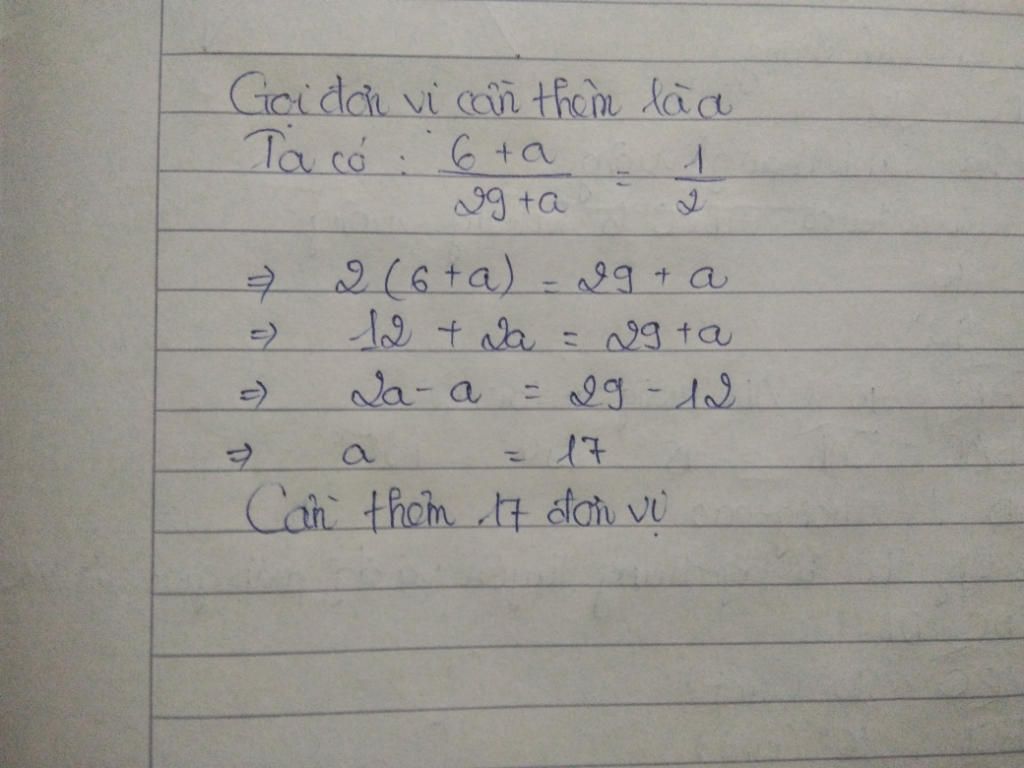 Gọi đơn vị cần thêm là a
Ta có : 6 + a / 29 + a = 1 / 2
⇒ 2 ( 6 + a ) = 29 + a
⇒ 12 + 2a = 29 + a
⇒ 2a - a = 29 - 12
⇒ a = 17
Cần thêm 17 đơn vị